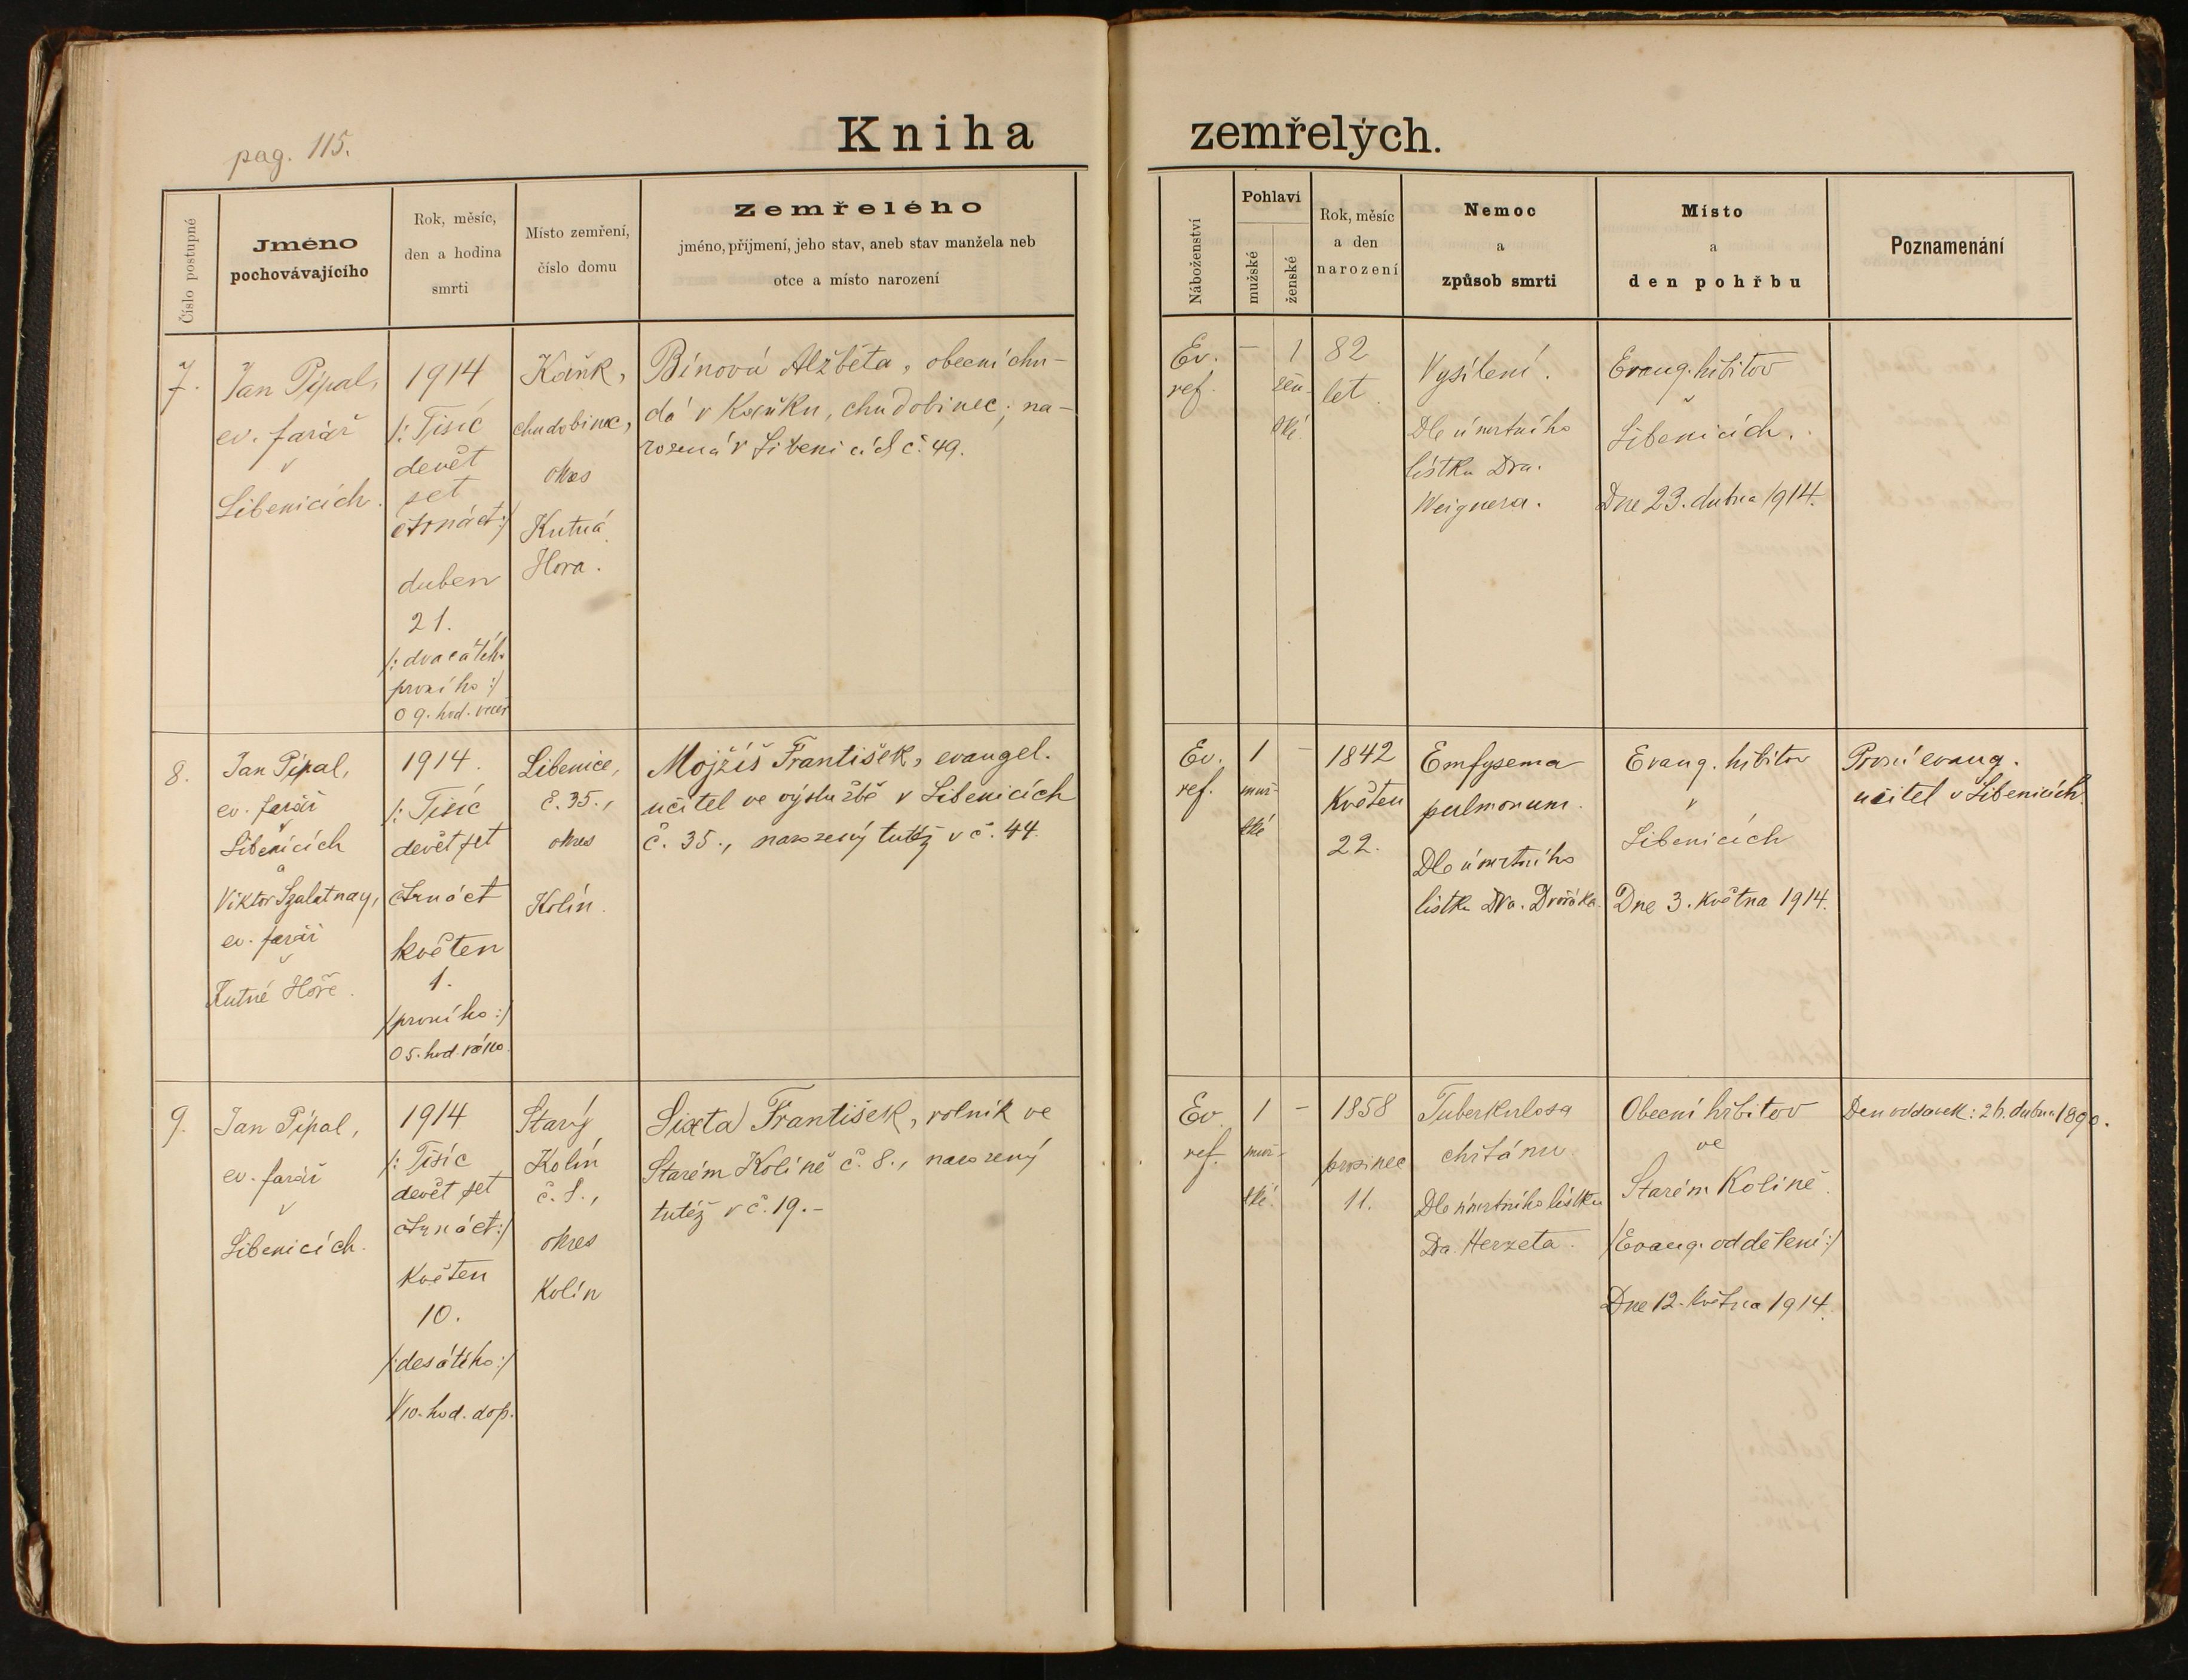 pag. 115.
Kniha zemřelých.
Číslo postupné
Jméno
pochovávajícího
Rok, měsíc,
den a hodina
smrti
Místo zemření,
číslo domu
Zemřelého
jméno, příjmení, jeho stav, aneb stav manžela neb
otce a místo narození
Náboženství
Pohlaví
mužské
ženské
Rok, měsíc
a den
narození
Nemoc
a
způsob smrti
Místo
a
den pohřbu
Poznamenání
7.
Jan Pípal,
ev. farář
v
Libenicích.
1914
/: Tisíc
devět
set
čtrnáct :/
duben
21.
/: dvacátého
prvního :/
o 9. hod. večer
Kaňk,
chudobinec,
okres
Kutná
Hora.
Bínová Alžběta, obecní chu-
dá v Kaňku, chudobinec; na-
rozená v Libenicích č. 49.
Ev.
ref.
– 1
žen-
ské.
82
let.
Vysílení.
Dle úmrtního
lístku Dra.
Weignera.
Evang. hřbitov
v
Libenicích.
Dne 23. dubna 1914.
8.
Jan Pípal,
ev. farář
v
Libenicích
a
Viktor Szalatnay,
ev. farář
v
Kutné Hoře.
1914.
/: Tisíc
devět set
čtrnáct
květen
1.
/prvního :/
o 5. hod. ráno.
Libenice,
č. 35.,
okres
Kolín.
Mojžíš František, evangel.
učitel ve výslužbě v Libenicích
č. 35., narozený tutéž v č. 44.
Ev.
ref.
1 –
muž-
ské
1842
Květen
22.
Emfysema
pulmonum.
Dle úmrtního
lístku Dra. Dvořáka.
Evang. hřbitov
v
Libenicích
Dne 3. května 1914.
První evang.
učitel v Libenicích.
9.
Jan Pípal,
ev. farář
v
Libenicích.
1914
/: Tisíc
devět set
čtrnáct :/
Květen
10.
/: desátého :/
10. hod. dop.
Starý
Kolín
č. 8.,
okres
Kolín
Sixta František, rolník ve
Starém Kolíně č. 8., narozený
tutéž v č. 19. –
Ev.
ref.
1 –
muž-
ské.
1858
prosinec
11.
Tuberkulosa
chřtánu.
Dle úmrtního lístku
Dra. Herzeta.
Obecní hřbitov
ve
Starém Kolíně.
/Evang. oddělení :/
Dne 12. května 1914.
Den oddavek: 26. dubna 1890.